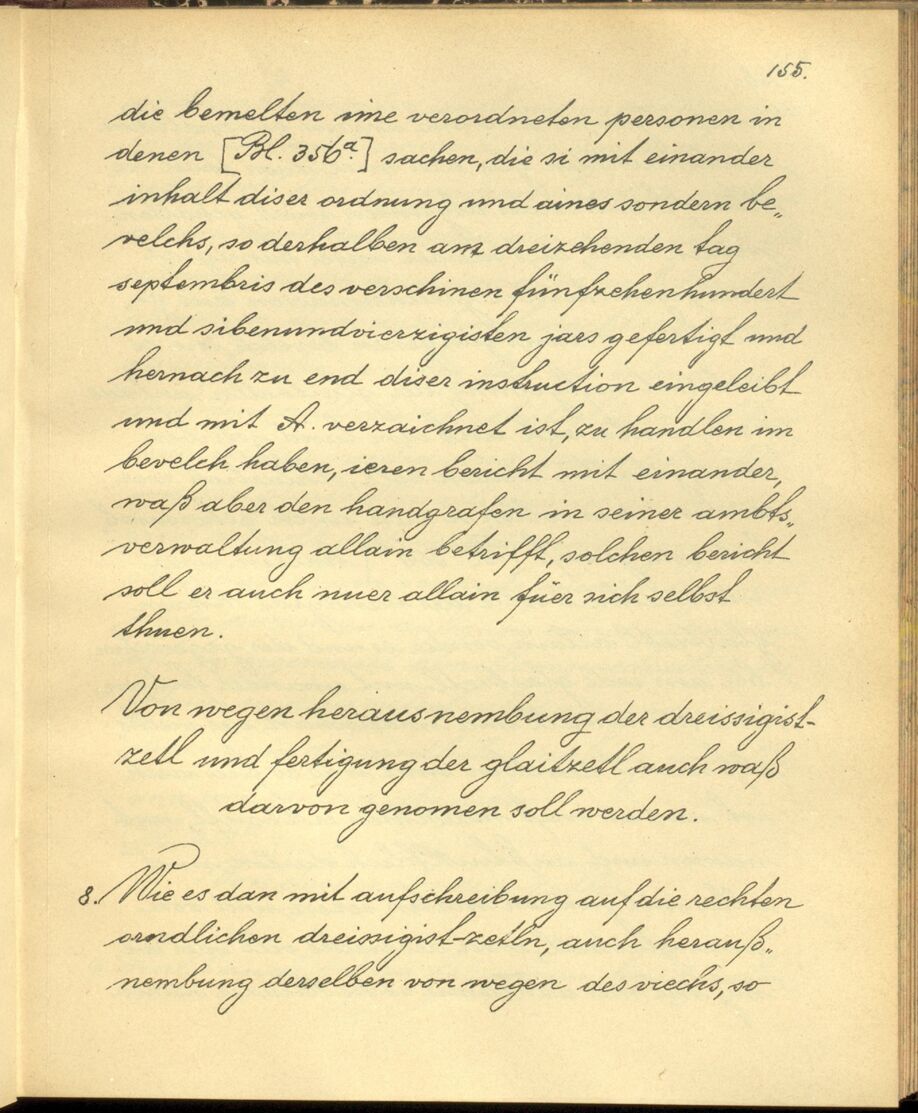 155.
die bemelten ime verordneten personen in
denen [Bl. 356ª.] sachen, die si mit einander
inhalt diser ordnung und aines sondern be„
velchs, so derhalben am dreizehenden tag
septembris des verschinen fünfzehenhundert
und sibenundvierzigisten jars gefertigt und
hernach zu end diser instruction eingeleibt
und mit A. verzaichnet ist, zu handlen im
bevelch haben, ieren bericht mit einander,
waß aber den handgrafen in seiner ambts„
verwaltung allain betrifft, solchen bericht
soll er auch nuer allain füer sich selbst
thuen.
Von wegen herausnembung der dreissigist-
zetl und fertigung der glaitzetl auch waß
darvon genomen soll werden.
8. Wie es dan mit aufschreibung auf die rechten
orndlichen dreissigist-zetln, auch herauß„
nembung derselben von wegen des viechs, so